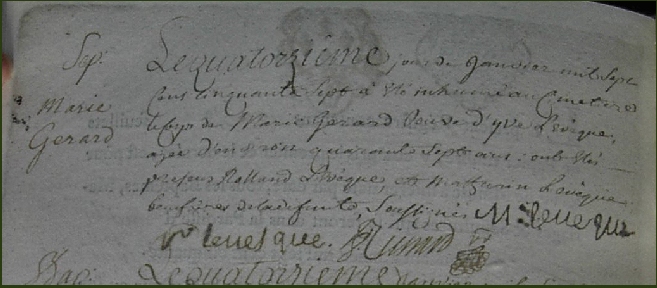 Sep:
Marie
Gerard
Lequatorzième jour de Janvier mil Sept
Cens cinquante Sept a été inhumé au Cimetière
le corps de Marie Gerard veuve d'yve Levêque,
agée d'environ quarante Sept ans: ont été
présens Rolland Levêque, et Mathurin Levêque
beaufrères de la défunte, Soussignés M: leveque
leuesque.
Bap:
Lequatorzième